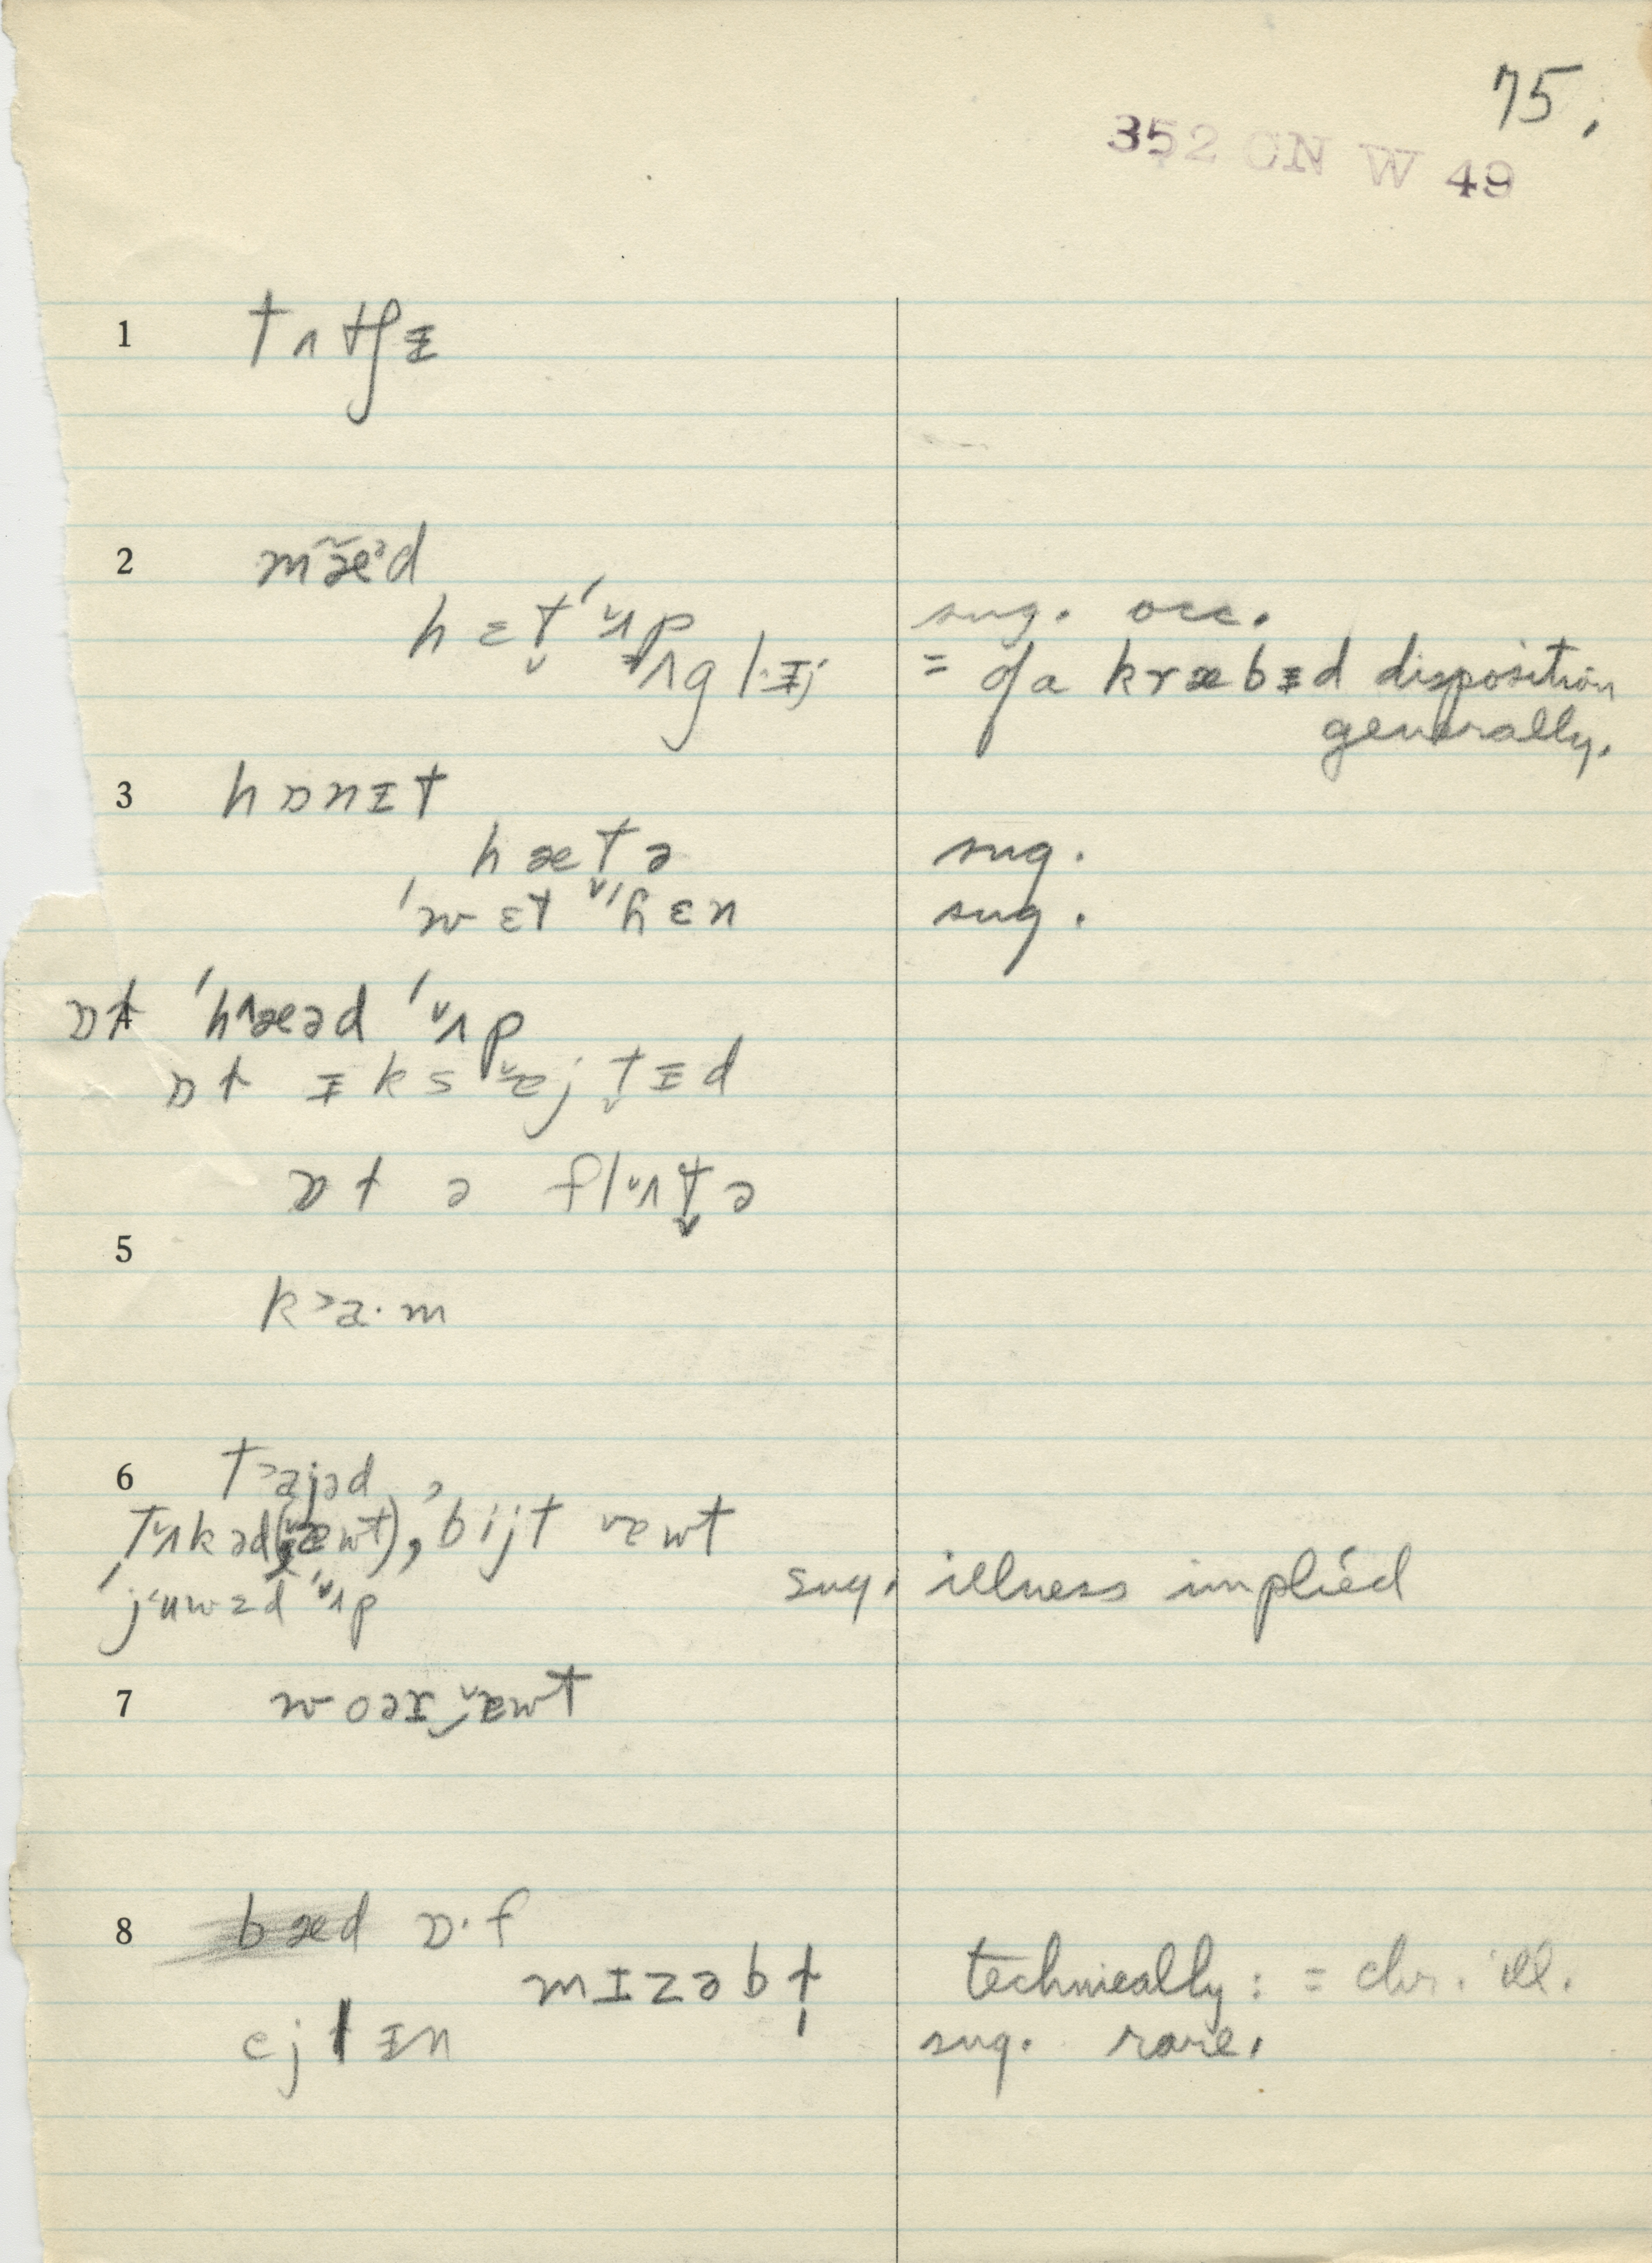 75.
352 CN W 49
1 tʌtʃɪ
2 mæ̃ᵊd
hɛt̬ ˈʌp sug. occ.
ʌglɪj = of a kræbɪd disposition
generally.
3 hɒnɪt
hæt̬ə sug.
ˈwɛt ˈhɛn sug.
4 ɒt ˈhæəd ˈʌp
ɒt ɪksɐjt̬ɪd
ɒt ə flʌt̬ə
5
ka·m
6 tajəd,
tʌkəd(ɐwt), bijt ɐwt
ˈjuwzd ˈʌp sug. illness implied
7 woəɪɐwt
8 bæd ɒ·f
mɪzəbt technically: = chr. ill.
ejlɪn sug. rare.